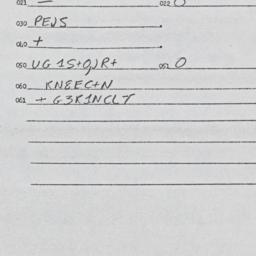 021 — 022 0
030 PEJS .
040 + .
050 UG 1S+OJR+ 051 O
060 KNEEC+N
061 + G3K1NCLT